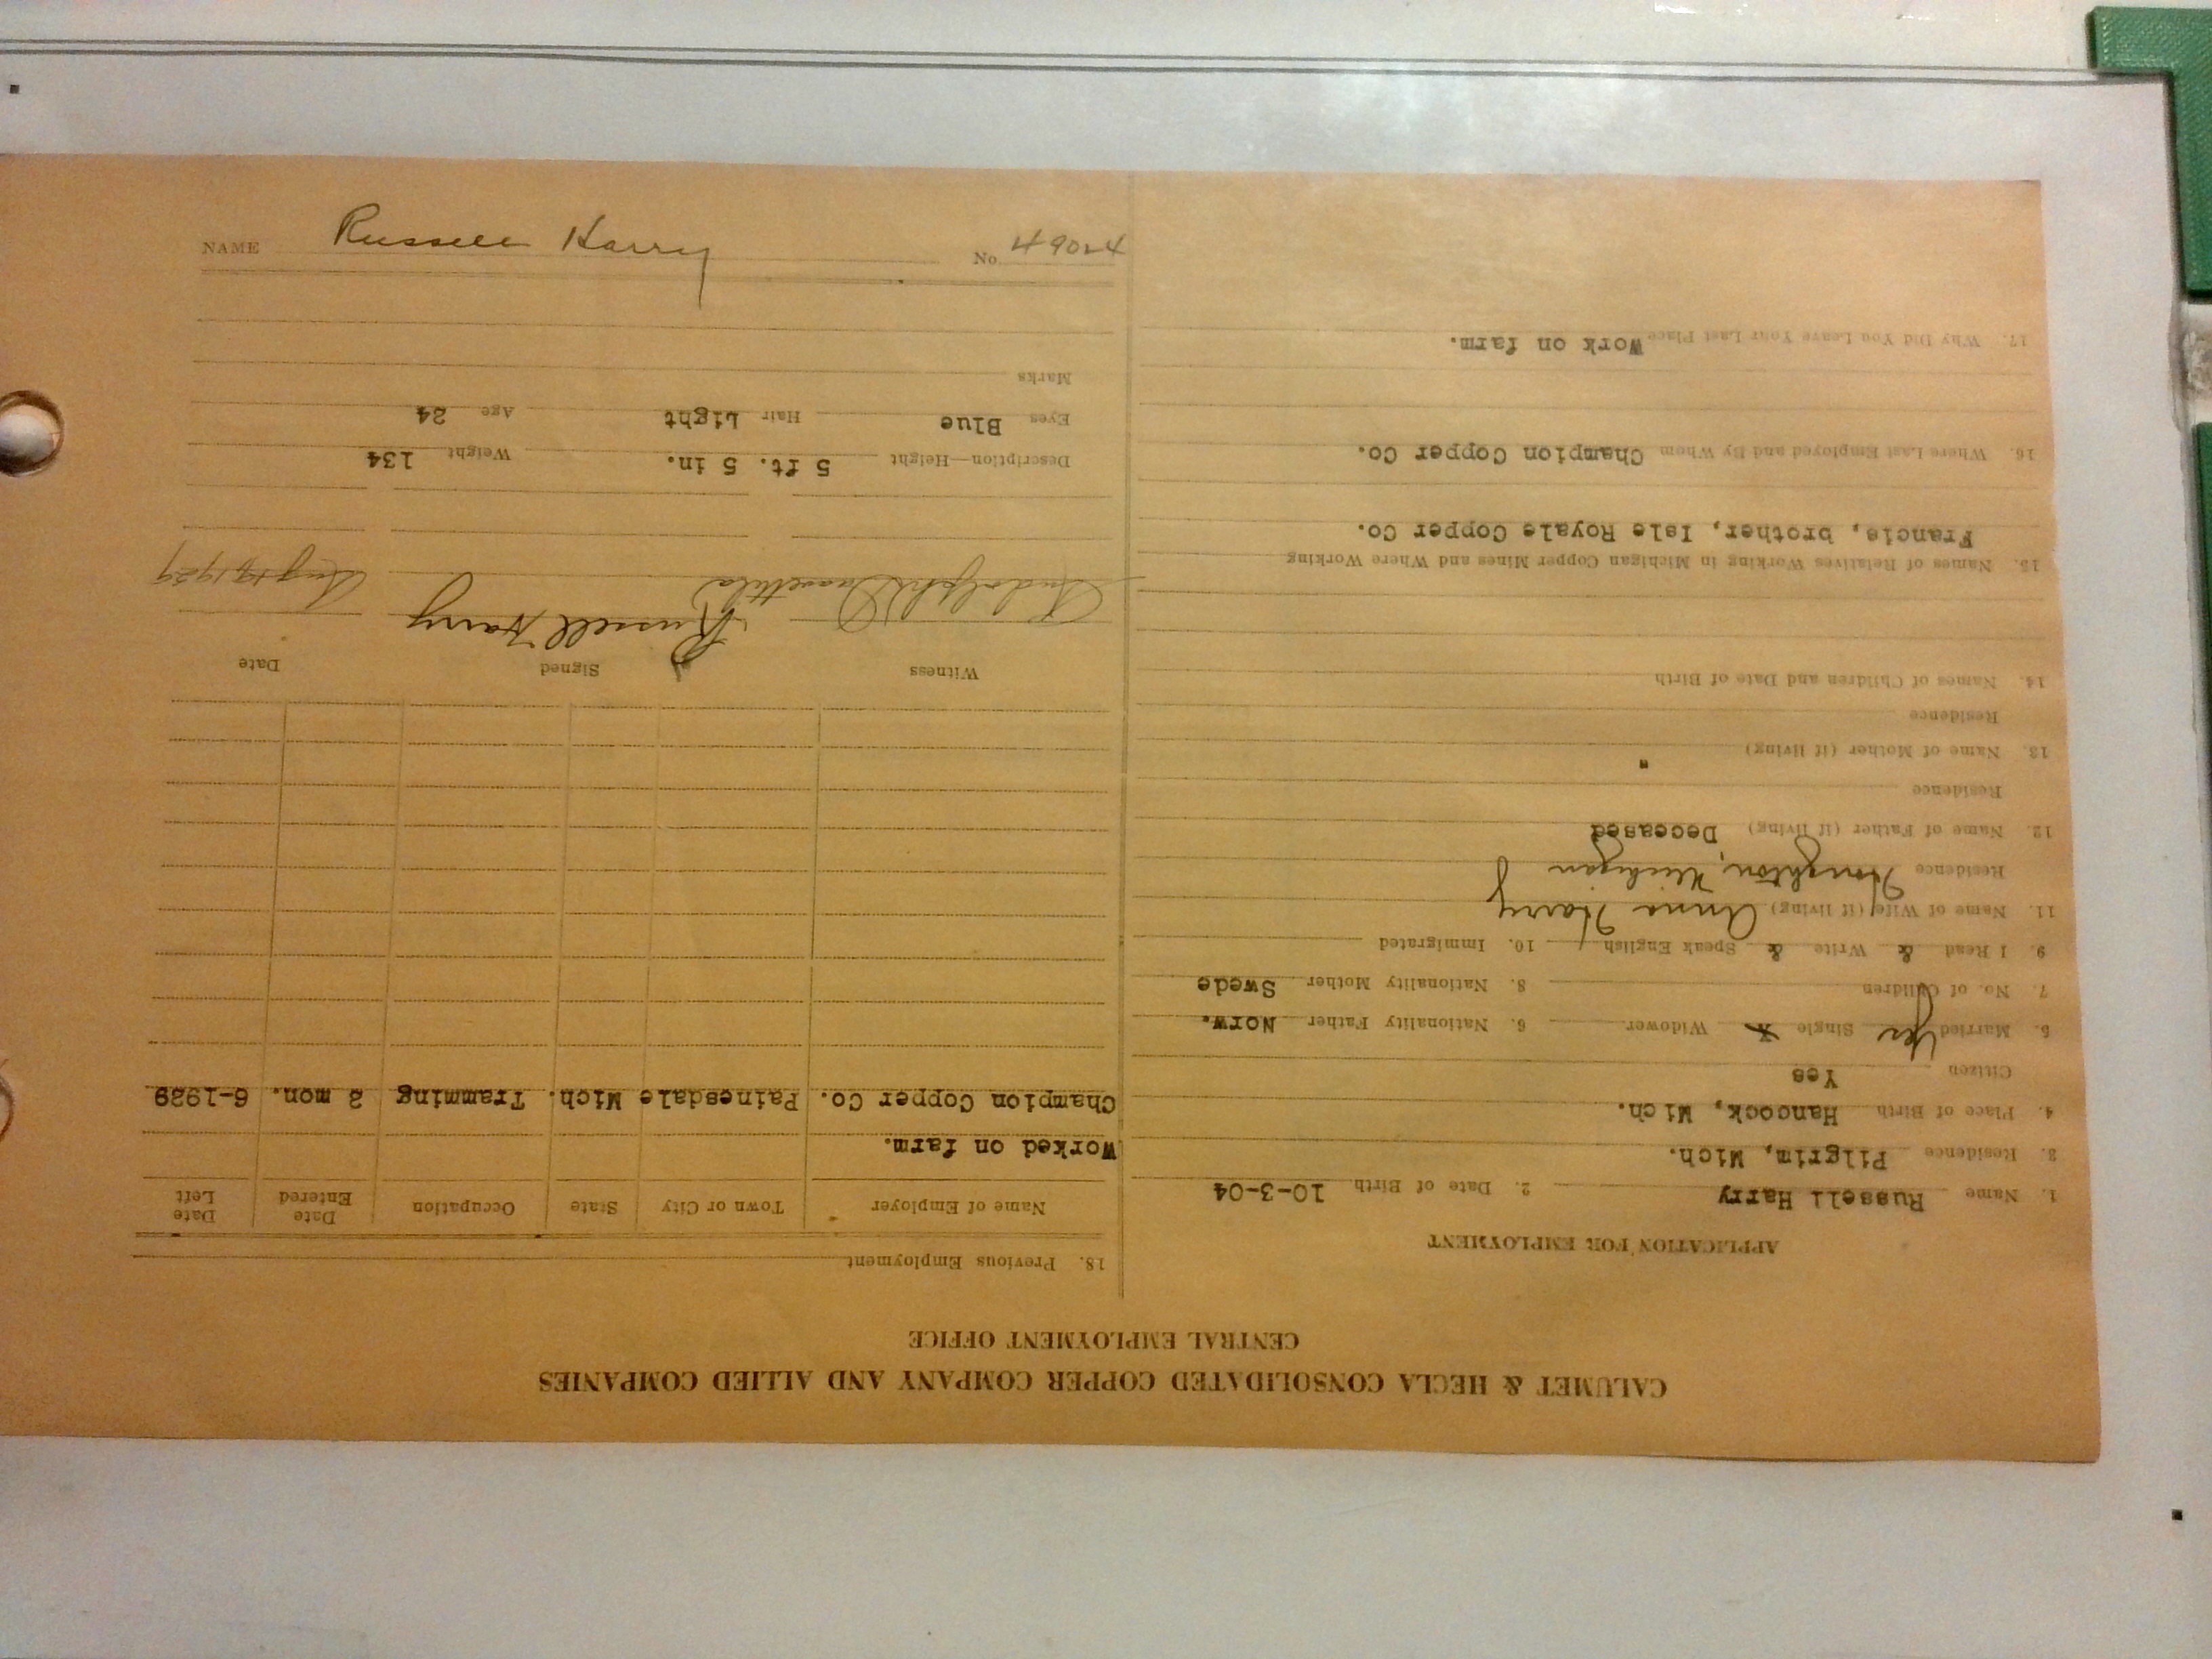 CALUMET & HECLA CONSOLIDATED COPPER COMPANY AND ALLIED COMPANIES
CENTRAL EMPLOYMENT OFFICE
APPLICATION FOR EMPLOYMENT
1. Name Russell Harry 2. Date of Birth 10-3-04
3. Residence Pilgrim, Mich.
4. Place of Birth Hancock, Mich.
Citizen Yes
5. Married Yes Single X Widower 6. Nationality Father Norw.
7. No. of Children 8. Nationality Mother Swede
9. I Read & Write & Speak English / 10. Immigrated
11. Name of Wife (if living) Anna Harry
Residence Houghton, Michigan
12. Name of Father (if living) Deceased
Residence
13. Name of Mother (if living) "
Residence
14. Names of Children and Date of Birth
15. Names of Relatives Working in Michigan Copper Mines and Where Working
Francis, brother, Isle Royale Copper Co.
16. Where Last Employed and By Whom Champion Copper Co.
17. Why Did You Leave Your Last Place Work on farm.
18. Previous Employment
Name of Employer Town or City State Occupation Date Entered Date Left
Worked on farm.
Champion Copper Co. Painesdale Mich. Tramming 2 mon. 6-1929
Witness Signed Date
Rudolph Russell Harry Aug 19, 1929
Description—Height 5 ft. 5 in. Weight 134
Eyes Blue Hair Light Age 24
Marks
NAME Russell Harry No. 49024